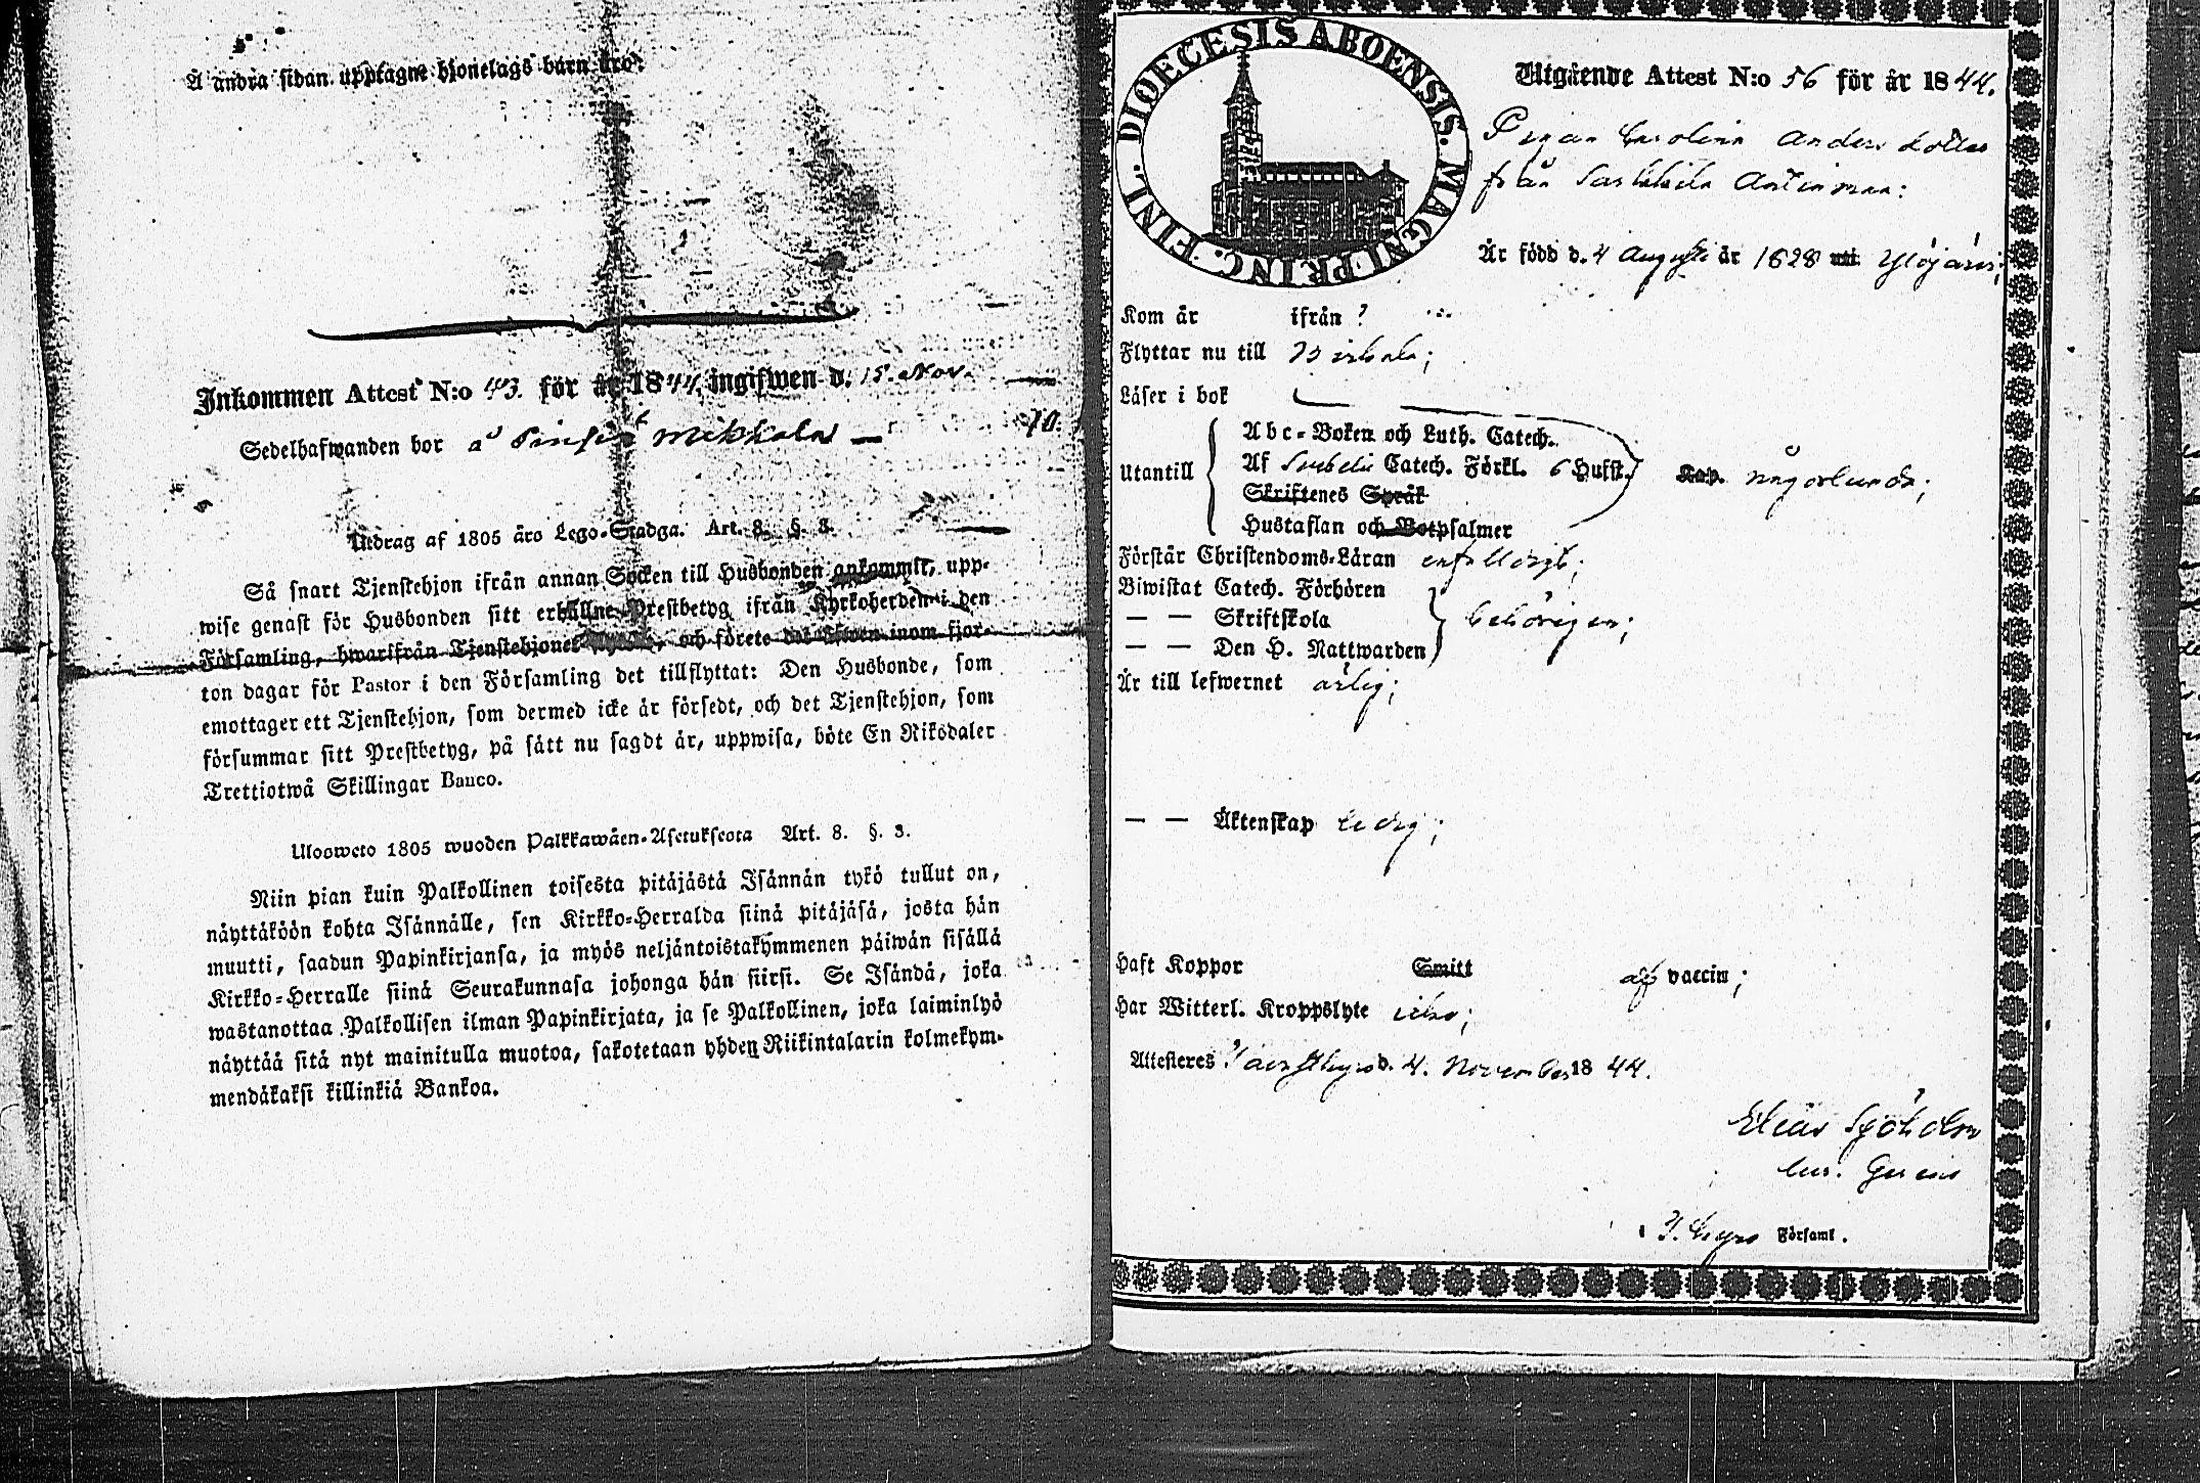 Å andra sidan upptagne hjonelags barn äro:
Inkommen Attest N:o 43. för år 1844. ingifwen d. 15. Nov.
Sedelhafwanden bor å Mikkola
70.
Utdrag af 1805 års Lego-Stadga. Art. 8. §. 3.
Så snart Tjenstehjon ifrån annan Socken till Husbonden ankommit, upp-
wise genast för Husbonden sitt erhållne Prestbetyg ifrån Kyrkoherden i den
Församling, hwarifrån Tjenstehjonet och förete inom fjor-
ton dagar för Pastor i den Församling det tillflyttat: Den Husbonde, som
emottager ett Tjenstehjon, som dermed icke är försedt, och det Tjenstehjon, som
försummar sitt Prestbetyg, på sätt nu sagdt är, uppwisa, böte En Riksdaler
Trettiotwå Skillingar Banco.
Ulosweto 1805 wuoden Palkkawäen-Asetuksesta Art. 8. §. 3.
Niin pian kuin Palkollinen toisesta pitäjästä Isännän tykö tullut on,
näyttäköön kohta Isännälle, sen Kirkko-Herralda siinä pitäjäsä, josta hän
muutti, saadun Papinkirjansa, ja myös neljäntoistakymmenen päiwän sisällä
Kirkko-Herralle siinä Seurakunnasa johonga hän siirsi. Se Isändä, joka
wastanottaa Palkollisen ilman Papinkirjata, ja se Palkollinen, joka laiminlyö
näyttää sitä nyt mainitulla muotoa, sakotetaan yhden Riikintalarin kolmekym-
mendäkaksi killinkiä Bankoa.
DIOECESIS ABOENSIS. MAGNI PRINC. FINL.
Utgående Attest N:o 56 för år 1844.
Pigan Carolina Anders dotter
från Antinmaa:
Är född d. 4 Augusti år 1828 uti Ylöjärvi;
Kom år ifrån ?
Flyttar nu till Birkala;
Läser i bok
Abc-Boken och Luth. Catech.
Utantill Af Svebelii Catech. Förkl. 6 Hufst. Kap. någorlunda;
Skriftenes Språk
Hustaflan och Botpsalmer
Förstår Christendoms-Läran enfalldigt;
Biwistat Catech. Förhören
— — Skriftskola behörigen;
— — Den H. Nattwarden
Är till lefwernet ärlig;
— — Äktenskap ledig;
Haft Koppor Smitt af vaccin;
Har Witterl. Kroppslyte icke;
Attesteres Tavastkyro d. 4. November 1844.
Elias Sjöholm
T. Kyro Församl.